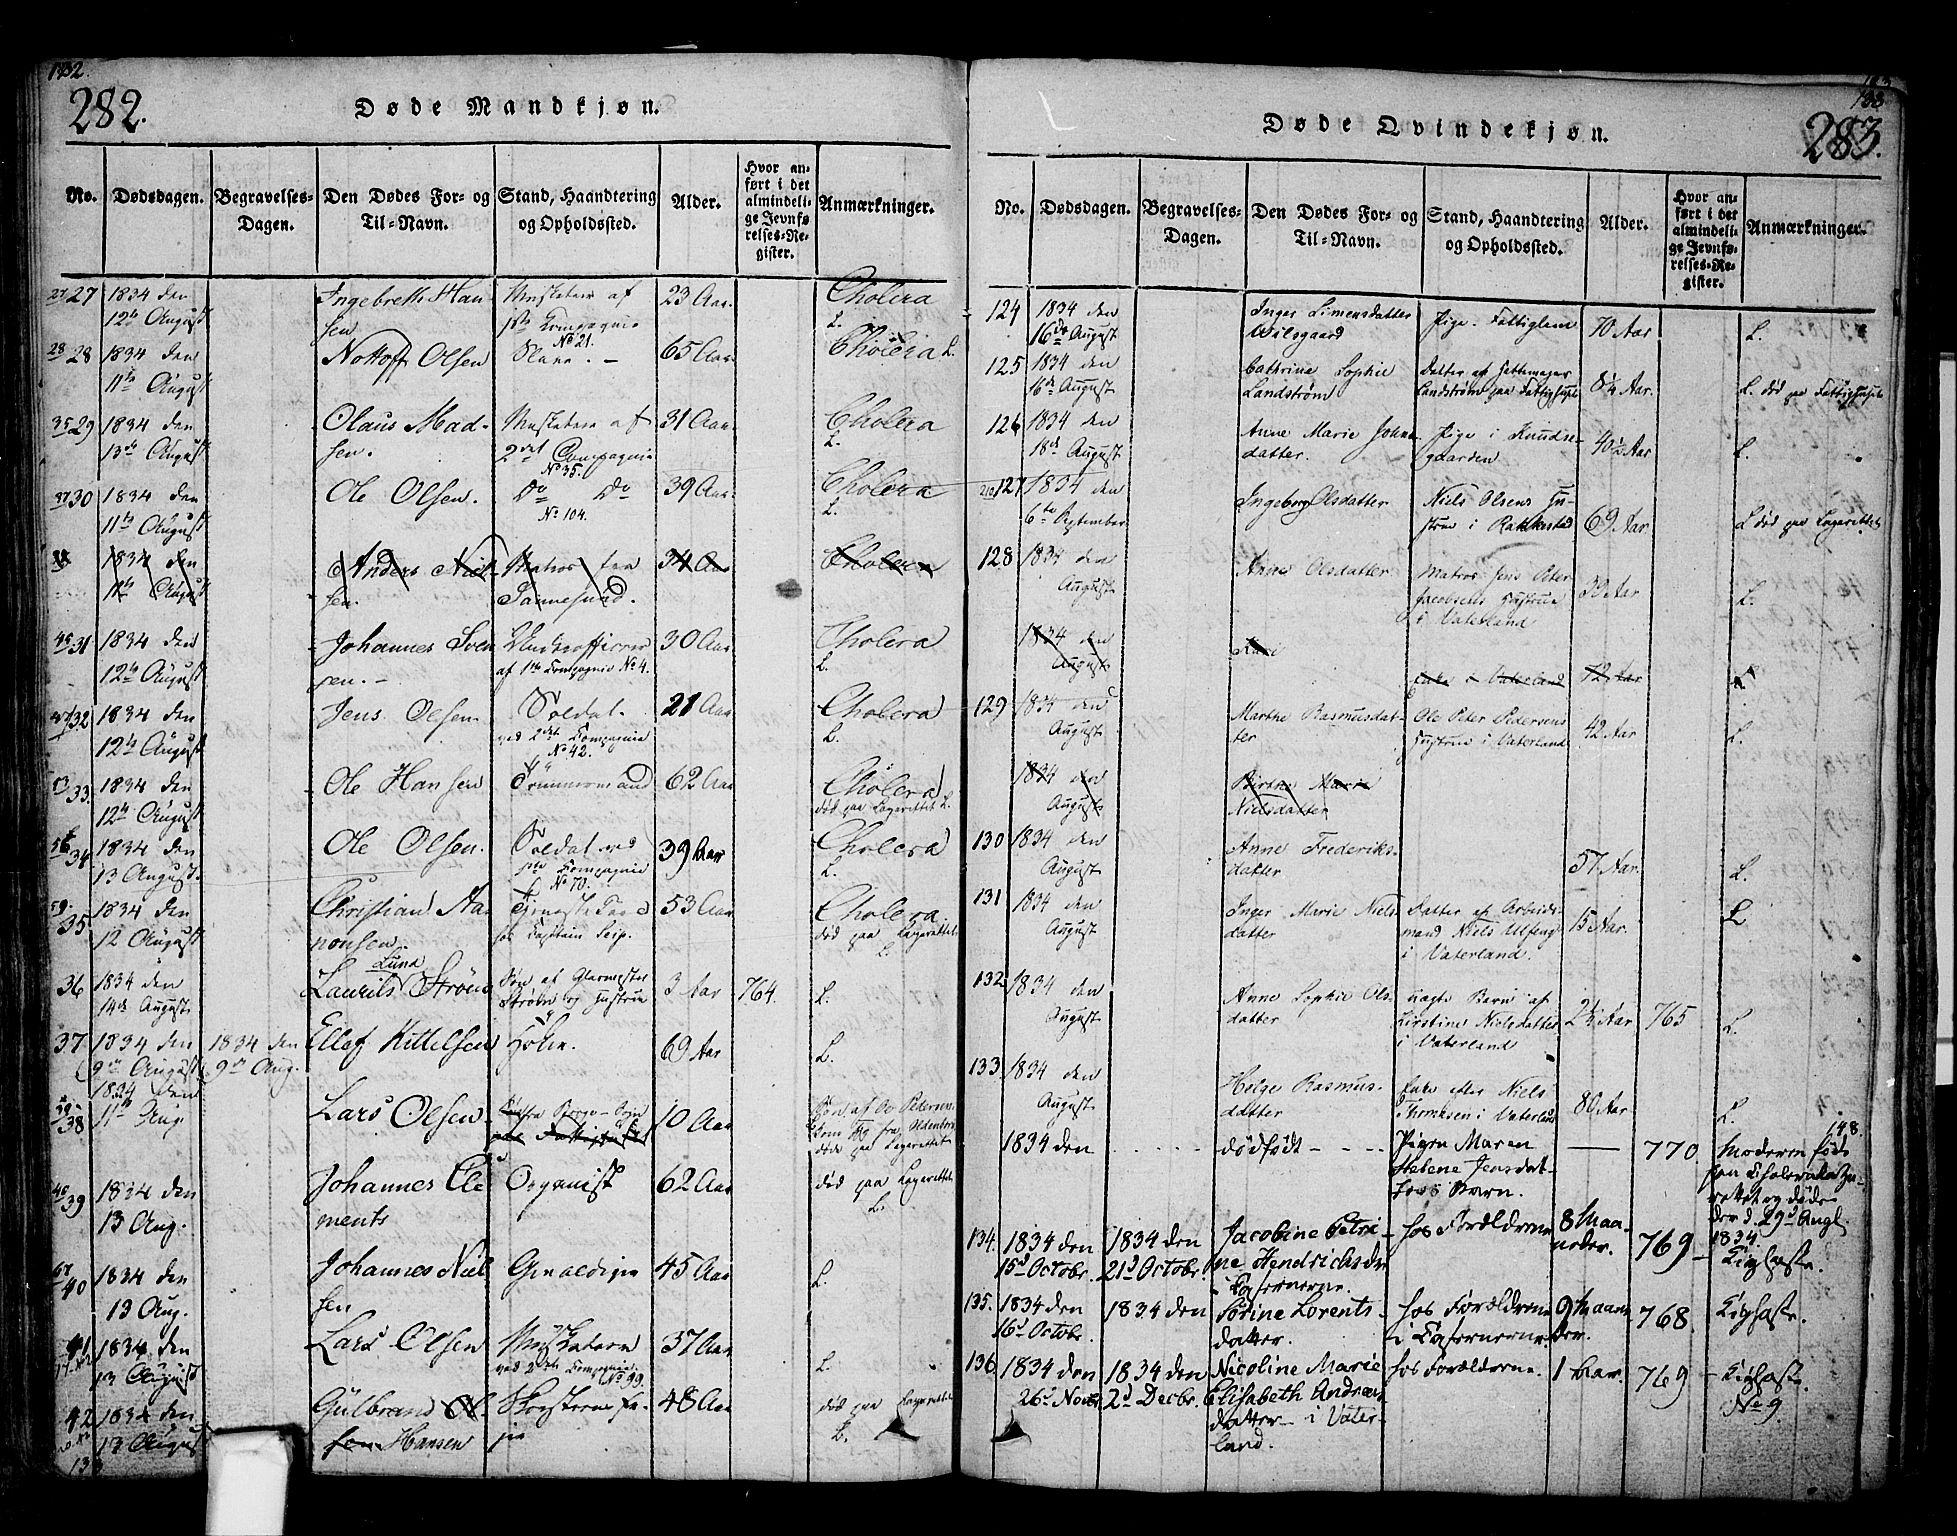 132.
282.
Døde Mandkjøn.
No. Dødsdagen. Begravelses-Dagen. Den Dødes For- og Til-Navn. Stand, Haandtering og Opholdssted. Alder. Hvor anført i det almindelige Jevnførelses-Register. Anmærkninger.
27 27 1834 den Ingebreth Han- Musketeer af 23 Aar Cholera
12te August sen 1ste Compagnie L.
No 21.
28 28 1834 den Nothoff Olsen Slave. - 65 Aar Cholera L.
11te August
35 29 1834 den Olaus Mad- Musketeer af 31 Aar Cholera
13de August sen. 2det Compagnie L.
No 35.
37 30 1834 den Ole Olsen. Do Do 39 Aar Cholera
11te August No 104. L.
1834 den Anders Niel- Matros fra 34 Aar Cholera
11te August sen. Sannesund.
45 31 1834 den Johannes Sven Underofficeer 30 Aar Cholera
12te August sen. - af 1ste Compagnie No 4. L.
47 32 1834 den Jens Olsen Soldat 21 Aar Cholera
12te August ved 2det Compagnie L.
No 42.
53 33. 1834 den Ole Hansen Tømmermand 62 Aar Cholera
12te August død paa Lazarettet L.
56 34 1834 den Ole Olsen. Soldat ved 39 Aar Cholera
13 August. 1ste Compagnie L.
No 70.
59. 35 1834 den Christian Aa- Tjeneste Karl 53 Aar Cholera
12 August nonsen. hos Capitain Seip. død paa Lazarettet
L.
Lund
36 1834 den Laurits Strøm Søn af Glarmester 3 Aar 764. L.
14de August Strøm og Hustrue
37 1834 den 1834 den Ellef Kittelsen 69 Aar L.
9de August 9de Aug.
38 1834 den Lars Olsen 10 Aar Søn af Ov Pedersen
11te Aug. død paa Lazarettet
39 1834 den Johannes Cle Organist 62 Aar død paa Lazarettet
13 Aug. ments L.
40 1834 den Johannes Niel 45 Aar L.
13 Aug. sen
41 1834 den Lars Olsen Musketeer 37 Aar L.
13 August ved 2det Compagnie
No 99.
42 1834 den Gulbrand Ol- 48 Aar død paa Lazarettet
13 August sen Hansen L.
133
283.
Døde Qvindekjøn.
No. Dødsdagen. Begravelses-Dagen. Den Dødes For- og Til-Navn. Stand, Haandtering og Opholdssted. Alder. Hvor anført i det almindelige Jevnførelses-Register. Anmærkninger.
124 1834 den Inger Simensdatter Pige. Fattiglem 70 Aar
16de August Wilsgaard L.
125 1834 den Cathrine Sophie Datter af Hattemager 8¼ Aar.
16de August Landstrøm Landstrøm paa Fattighuset L. død paa Fattighuset
126 1834 den Anne Marie Johne Pige i Knudse- 40½ Aar
18de August datter. gaarden L.
127 1834 den Ingeborg Olsdatter Niels Olsens Hu- 69 Aar
6te September strue i Rakkestad L død paa Lazarettet
128 1834 den Anne Olsdatter Matros Jens Peter 30 Aar
August Jacobsens Hustrue L.
i Vaterland
1834 den Kari
August Enke i Vaterland 72 Aar
129 1834 den Marthe Rasmusdat- Ole Peter Pedersens 42 Aar
August ter Hustrue i Vaterland L.
1834 den Birthe Marie
August Nielsdatter
130 1834 den Anne Frederiks-
August datter 57 Aar. L.
131 1834 den Inger Marie Niels Datter af Arbeids- 15 Aar.
August datter mand Niels Ulseng L
i Vaterland.
132 1834 den Anne Sophie Ols uægte Barn af 2¼ Aar 765
August datter Kirstine Nielsdatter L.
i Vaterland
133 1834 den Helge Rasmus- Enke efter Niels
August datter Thomesen i Vaterland 80 Aar L.
148.
1834 den dødfødt - - - Pigen Maren — 770 Moderen føde
Helene Jensdat- paa Choleralaza-
ters Barn. rettet og døde
der d. 29d Augt.
1834.
134. 1834 den 1834 den Jacobine Petri- hos Forældrene 8 Maa- 769 Kighoste.
15d Octobr. 21d Octobr. ne Hendrichsdr neder.
i Casernerne.
135. 1834 den 1834 den Sørine Lorents- hos Forældrene 9 Maane- 768 Kighoste.
16d Octobr. datter. i Casernerne der.
136 1834 den 1834 den Nicoline Marie hos Forældrene. 1 Aar. 769 Kighoste.
26d Novbr 2d Decbr. Elisabeth Andreas No 9
datter - i Vater-
land.